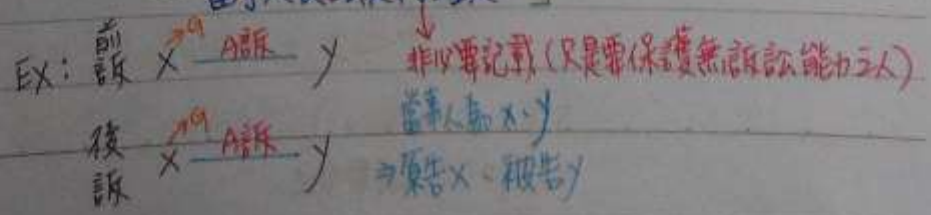 EX: 前訴 X →a A訴 y 非必要記載(只是要保護無訴訟能力之人)
後訴 X →a A訴 y 當事人為X、y
⇒原告X、被告y